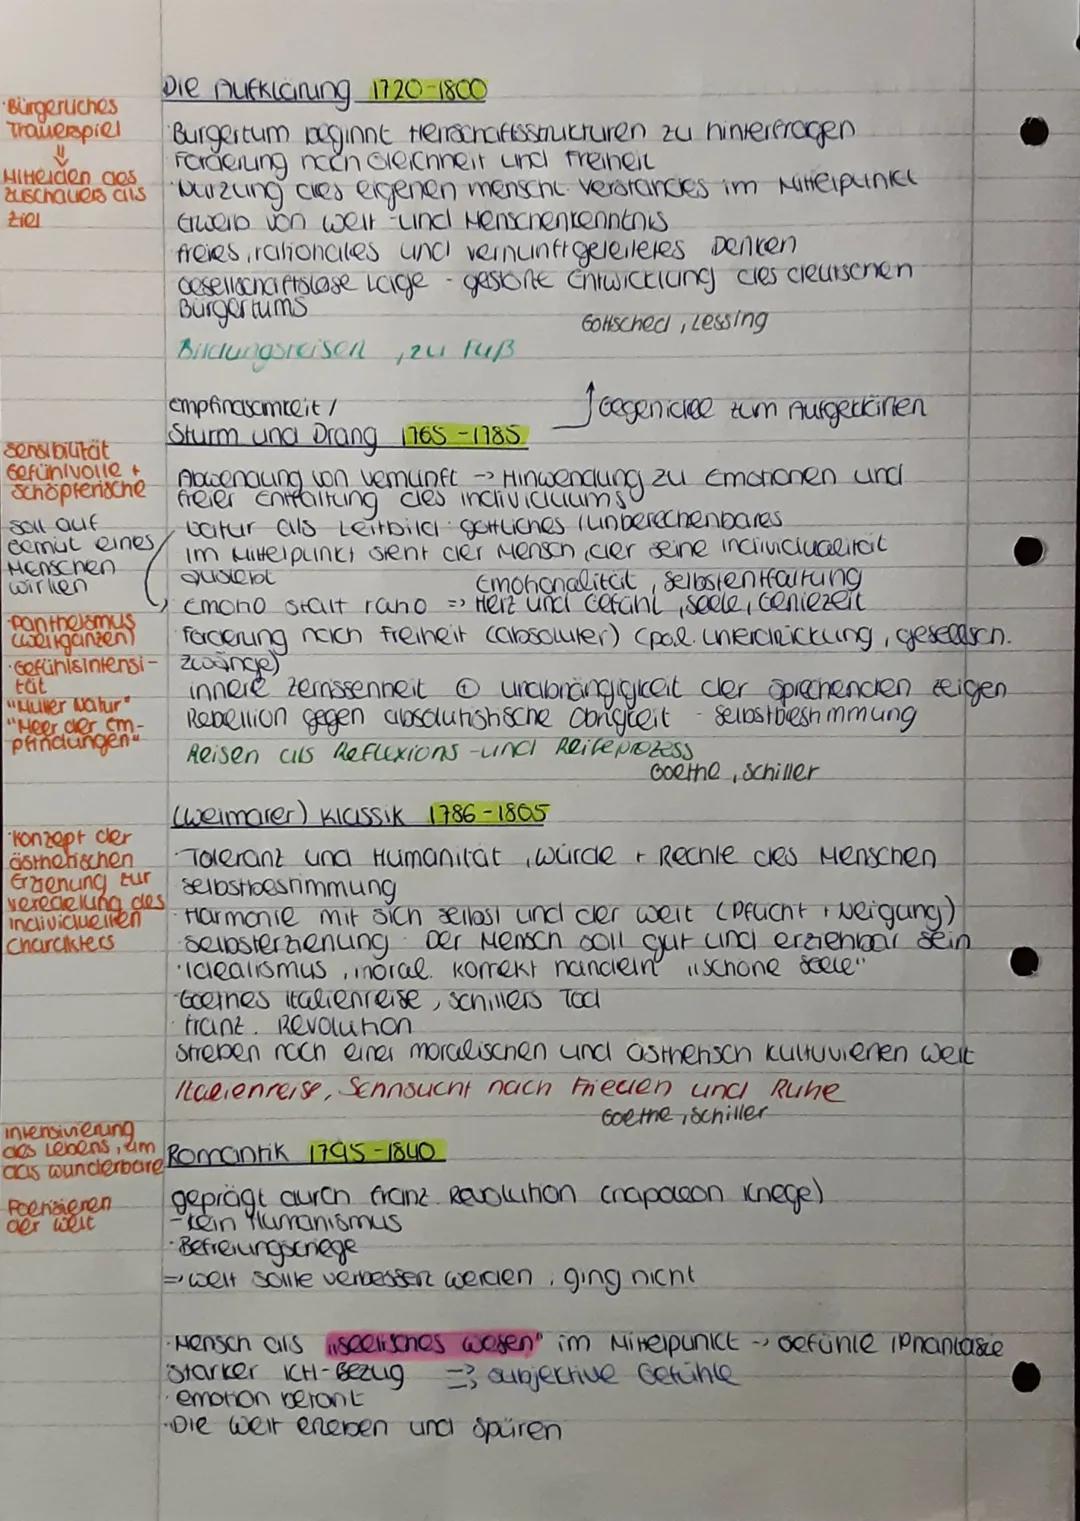 Die Aufklärung 1720-1800
· Bürgerliches
Trauerspiel
⇓
Mitleiden des
Zuschauers als
Ziel
Bürgertum beginnt Herrschaftsstrukturen zu hinterfragen
Forderung nach Gleichheit und Freiheit
Nutzung des eigenen menschl. Verstandes im Mittelpunkt
Erwerb von Welt- und Menschenkenntnis
freies, rationales und vernunftgeleitetes Denken
Gesellschaftslose Lage - gestörte Entwicklung des deutschen
Bürgertums
Gottsched, Lessing
Bildungsreisen, zu Fuß
Empfindsamkeit /
Sturm und Drang 1765-1785
↑ Gegenidee zum Aufgeklärten
Sensibilität
Gefühlvolle +
Schöpferische
soll auf
Gemüt eines
Menschen
wirken
· Pantheismus
(Weltganzen)
· Gefühlsintensi-
tät
"Mutter Natur"
"Meer der Em-
pfindungen"
Abwendung von Vernunft -> Hinwendung zu Emotionen und
freier Entfaltung des Individuums
Natur als Leitbild: göttliches / unberechenbares
im Mittelpunkt steht der Mensch, der seine Individualität
auslebt
Emotionalität, Selbstentfaltung
emotio statt ratio => Herz und Gefühl, Seele, Geniezeit
Forderung nach Freiheit (absoluter) (pol. Unterdrückung, gesellsch.
Zwänge)
innere Zerrissenheit + Unabhängigkeit der Sprechenden zeigen
Rebellion gegen absolutistische Obrigkeit - Selbstbestimmung
Reisen als Reflexions- und Reifeprozess
Goethe, Schiller
(Weimarer) Klassik 1786-1805
· Konzept der
ästhetischen
Erziehung zur
Veredelung des
individuellen
Charakters
· Toleranz und Humanität, Würde + Rechte des Menschen
Selbstbestimmung
· Harmonie mit sich selbst und der Welt (Pflicht + Neigung)
· Selbsterziehung: Der Mensch soll gut und erziehbar sein
· Idealismus, moral. korrekt handeln "schöne Seele"
· Goethes Italienreise, Schillers Tod
· Franz. Revolution
Streben nach einer moralischen und ästhetisch kultuvierten Welt
Italienreise, Sehnsucht nach Frieden und Ruhe
Goethe, Schiller
Intensivierung
des Lebens, um
das wunderbare
Poetisieren
der Welt
Romantik 1795-1840
geprägt durch franz. Revolution (napoleon Kriege)
- kein Humanismus
· Befreiungskriege
=> Welt sollte verbessert werden, ging nicht
· Mensch als "seelisches Wesen" im Mittelpunkt -> Gefühle / Phantasie
Starker ICH-Bezug => subjektive Gefühle
· emotion betont
· Die Welt erleben und spüren